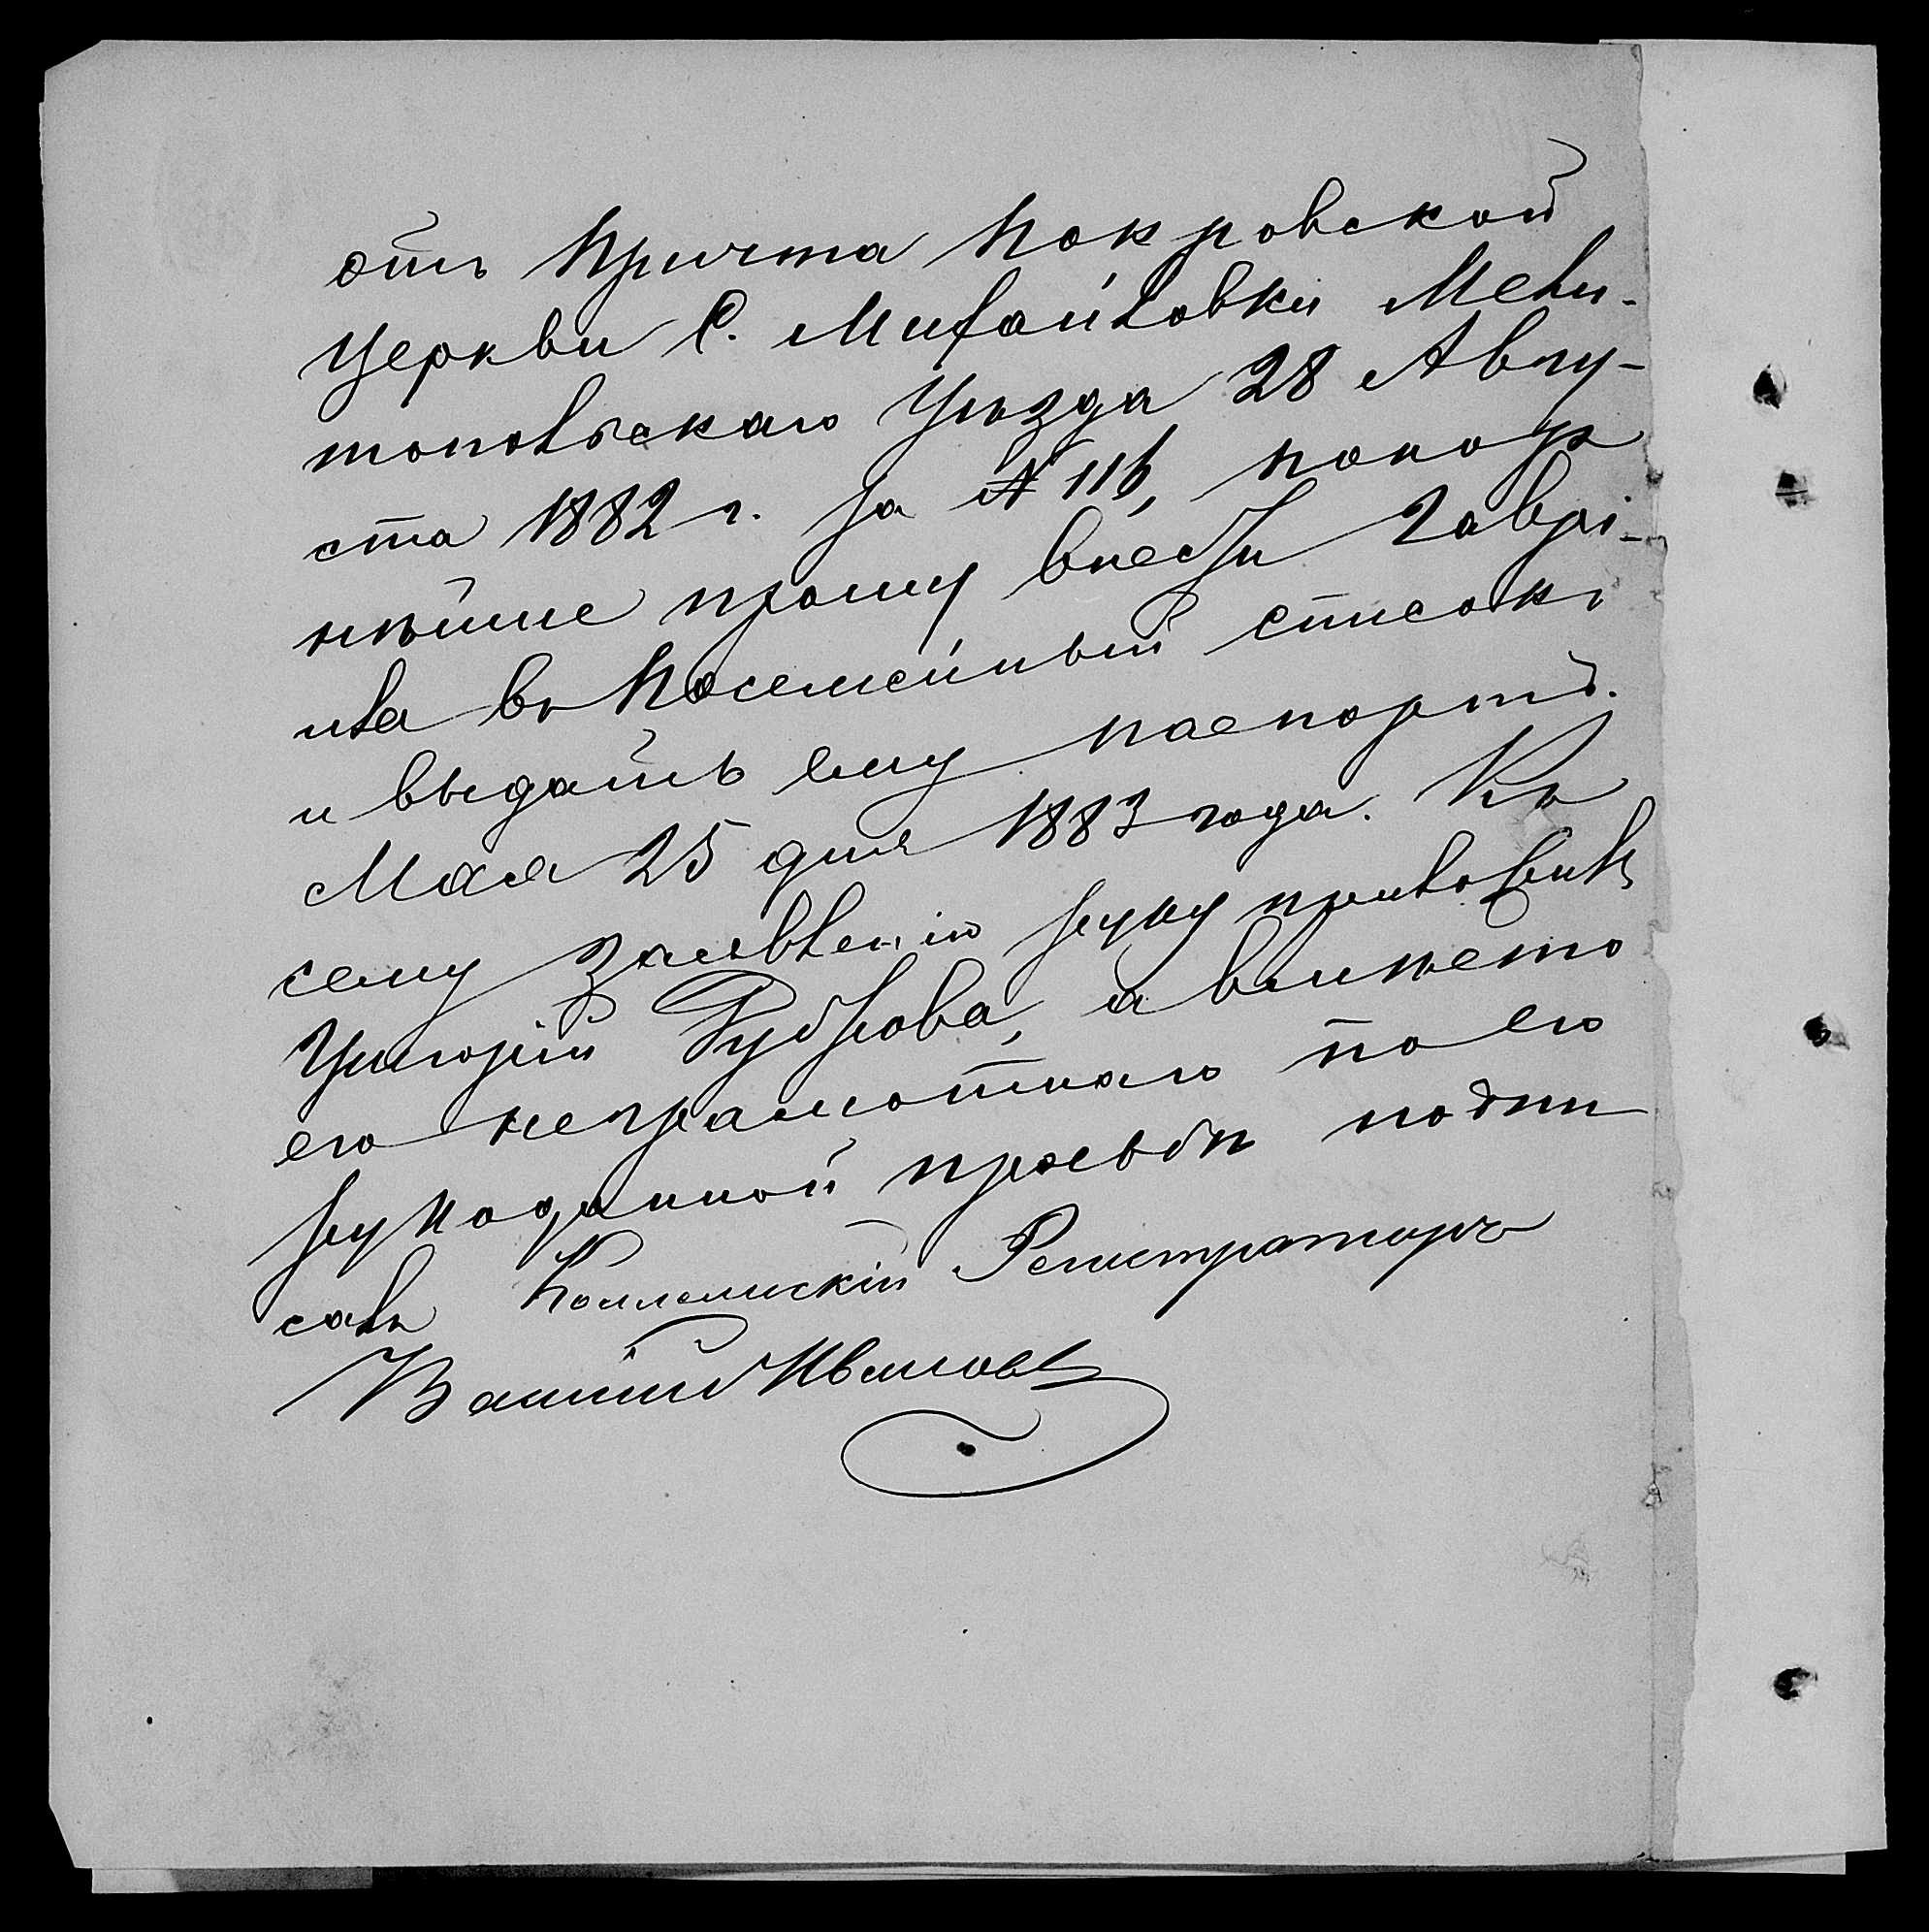 отъ Причта Покровской
Церкви С. Михайловки Мели-
топольскаго Уѣзда 28 Авгу-
ста 1882 г. за № 116, покор
нѣйше прошу внести Гаврі-
ила въ Посемейный списокъ
и выдать ему паспортъ.
Мая 25 дня 1883 года. Къ
сему заявленію руку приложилъ
Григорій а вмѣсто
его неграмотнаго по его
рукоданной прозьбѣ подпи
салъ Коллежскій Регистраторъ
Ивановъ